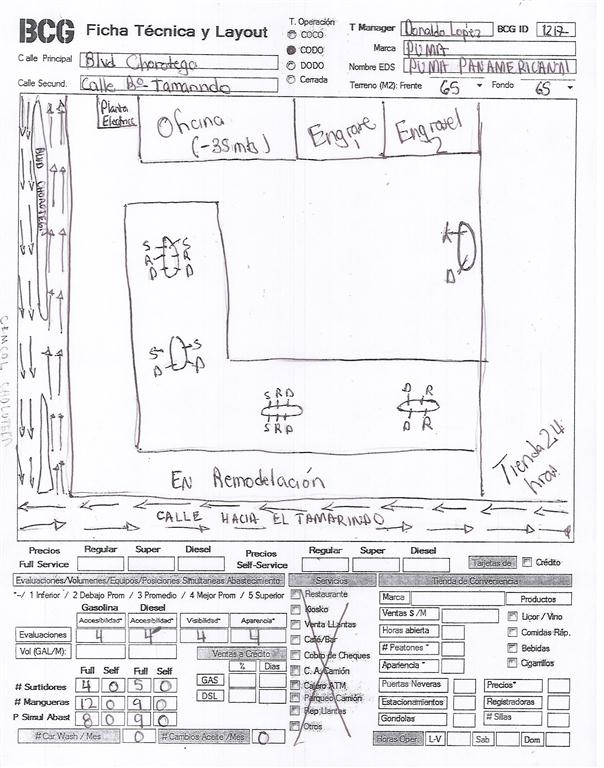 BCG Ficha Técnica y Layout
T. Operación
COCO
CODO
DODO
Cerrada
T Manager Donaldo Lopez BCG ID 1217
Marca PUMA
Nombre EDS PUMA PANAMERICANA
Terreno (M2): Frente 65 Fondo 65
Calle Principal Blvd Chorotega
Calle Secund. Calle Bº Tamarindo
Planta Electrica
Oficina
(-35 mts)
Engrase 1
Engrase 2
BLVD CHOROTEGA
S S
R R
D D
R
D
S S
D D
S R D
S R D
D R
D R
Tienda 24 horas
EN Remodelación
CALLE HACIA EL TAMARINDO
Precios Full Service Regular Super Diesel
Precios Self-Service Regular Super Diesel
Tarjetas de Crédito
Evaluaciones/Volumenes/Equipos/Posiciones Simultaneas Abastecimiento
Servicios
Tienda de Conveniencia
*-/ 1 Inferior / 2 Debajo Prom / 3 Promedio / 4 Mejor Prom / 5 Superior
Gasolina Diesel
Accesibilidad* Accesibilidad* Visibilidad* Aparencia*
Evaluaciones 4 4 4 4
Vol (GAL/M):
Ventas a Crédito
% Dias
GAS
DSL
Full Self Full Self
# Surtidores 4 0 5 0
# Mangueras 12 0 9 0
P Simul Abast 8 0 9 0
# Car Wash / Mes 0 # Cambios Aceite /Mes 0
Restaurante
Kiosko
Venta Llantas
Café/Bar
Cobio de Cheques
C. A. Camión
Cajero ATM
Parqueo Camión
Rep.Llantas
Otros
Marca
Ventas $ /M
Horas abierta
# Peatones *
Apariencia *
Productos
Licor / Vino
Comidas Ráp.
Bebidas
Cigarrillos
Puertas Neveras Precios*
Estacionamientos Registradoras
Gondolas # Sillas
Horas Oper. L-V Sab Dom